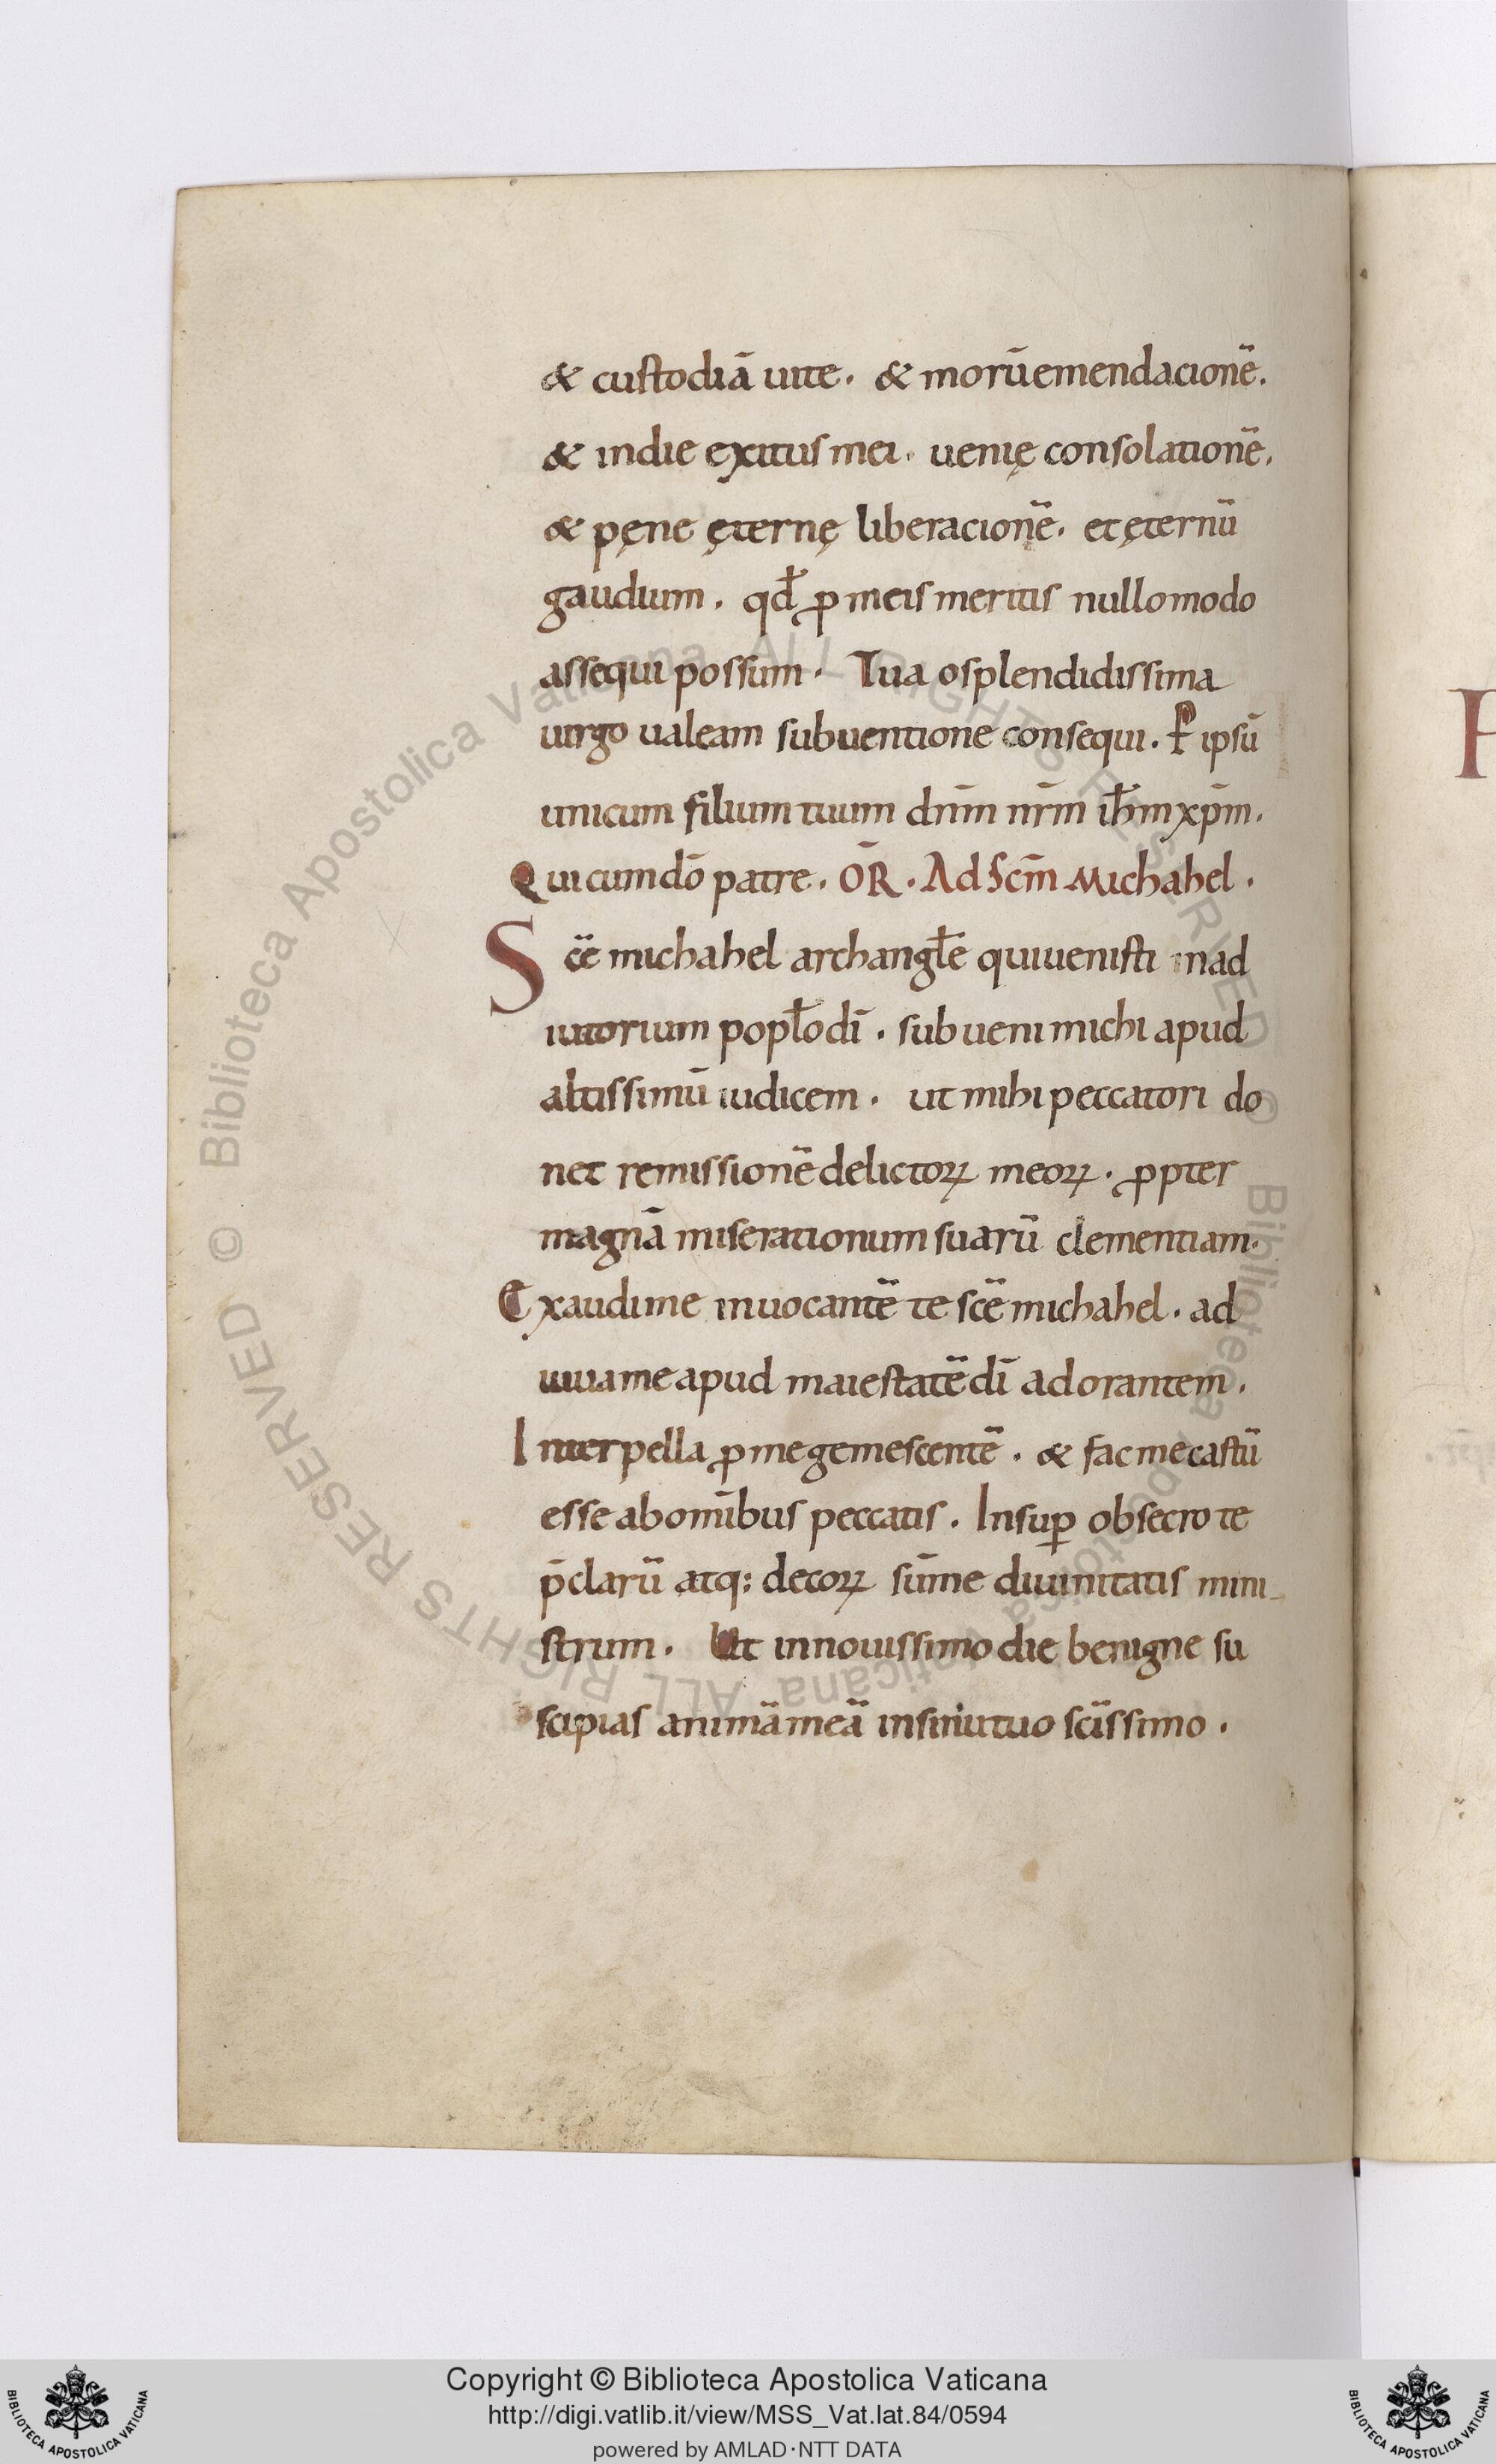 & custodiā uite. & morū emendacionē.
& in die exitus mei. uenię consolationē.
& pęne ęternę liberacionē. et ęternū
gaudium. qđ ꝓ meis meritis nullo modo
assequi possum. Tua o splendidissima
uirgo ualeam subuentione consequi. P ipsū
unicum filium tuum dn̄m nr̄m ih̄m xp̄m.
Qui cum dō patre. OR̄. Ad Scm̄ Michahel.
Scē michahel archangł̄e qui uenisti in ad
iutorium popł̄o dī. subueni michi apud
altissimū iudicem. ut mihi peccatori do
net remissionē delictoꝝ meoꝝ. ꝓpter
magnā miserationum suarū clementiam.
Exaudi me inuocantē te scē michahel. ad
iuua me apud maiestatē dī adorantem.
Interpella ꝓ me gemescentē. & fac me castū
esse ab omībus peccatis. Insuꝑ obsecro te
p̄clarū atq: decoꝝ sūme diuinitatis mini
strum. Ut in nouissimo die benigne su
scipias animā meā in sinu tuo scīssimo.
Copyright © Biblioteca Apostolica Vaticana
http://digi.vatlib.it/view/MSS_Vat.lat.84/0594
powered by AMLAD·NTT DATA
BIBLIOTECA APOSTOLICA VATICANA
BIBLIOTECA APOSTOLICA VATICANA
© Biblioteca Apostolica Vaticana ALL RIGHTS RESERVED
© Biblioteca Apostolica Vaticana ALL RIGHTS RESERVED